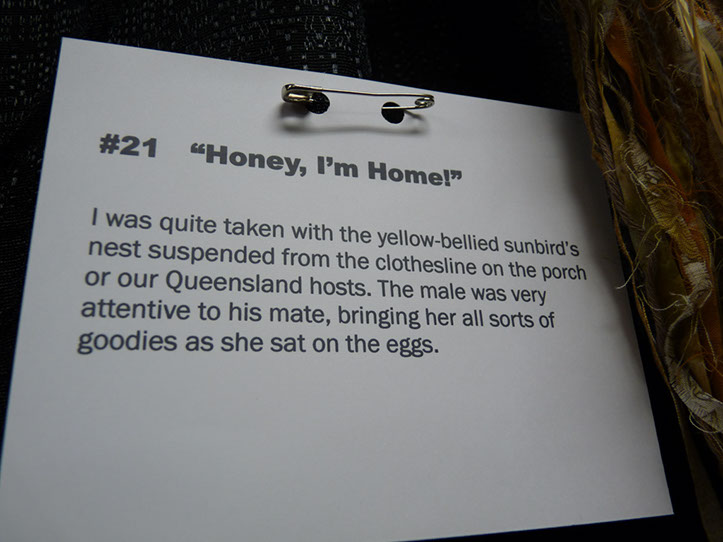 #21 “Honey, I’m Home!”
I was quite taken with the yellow-bellied sunbird’s
nest suspended from the clothesline on the porch
or our Queensland hosts. The male was very
attentive to his mate, bringing her all sorts of
goodies as she sat on the eggs.